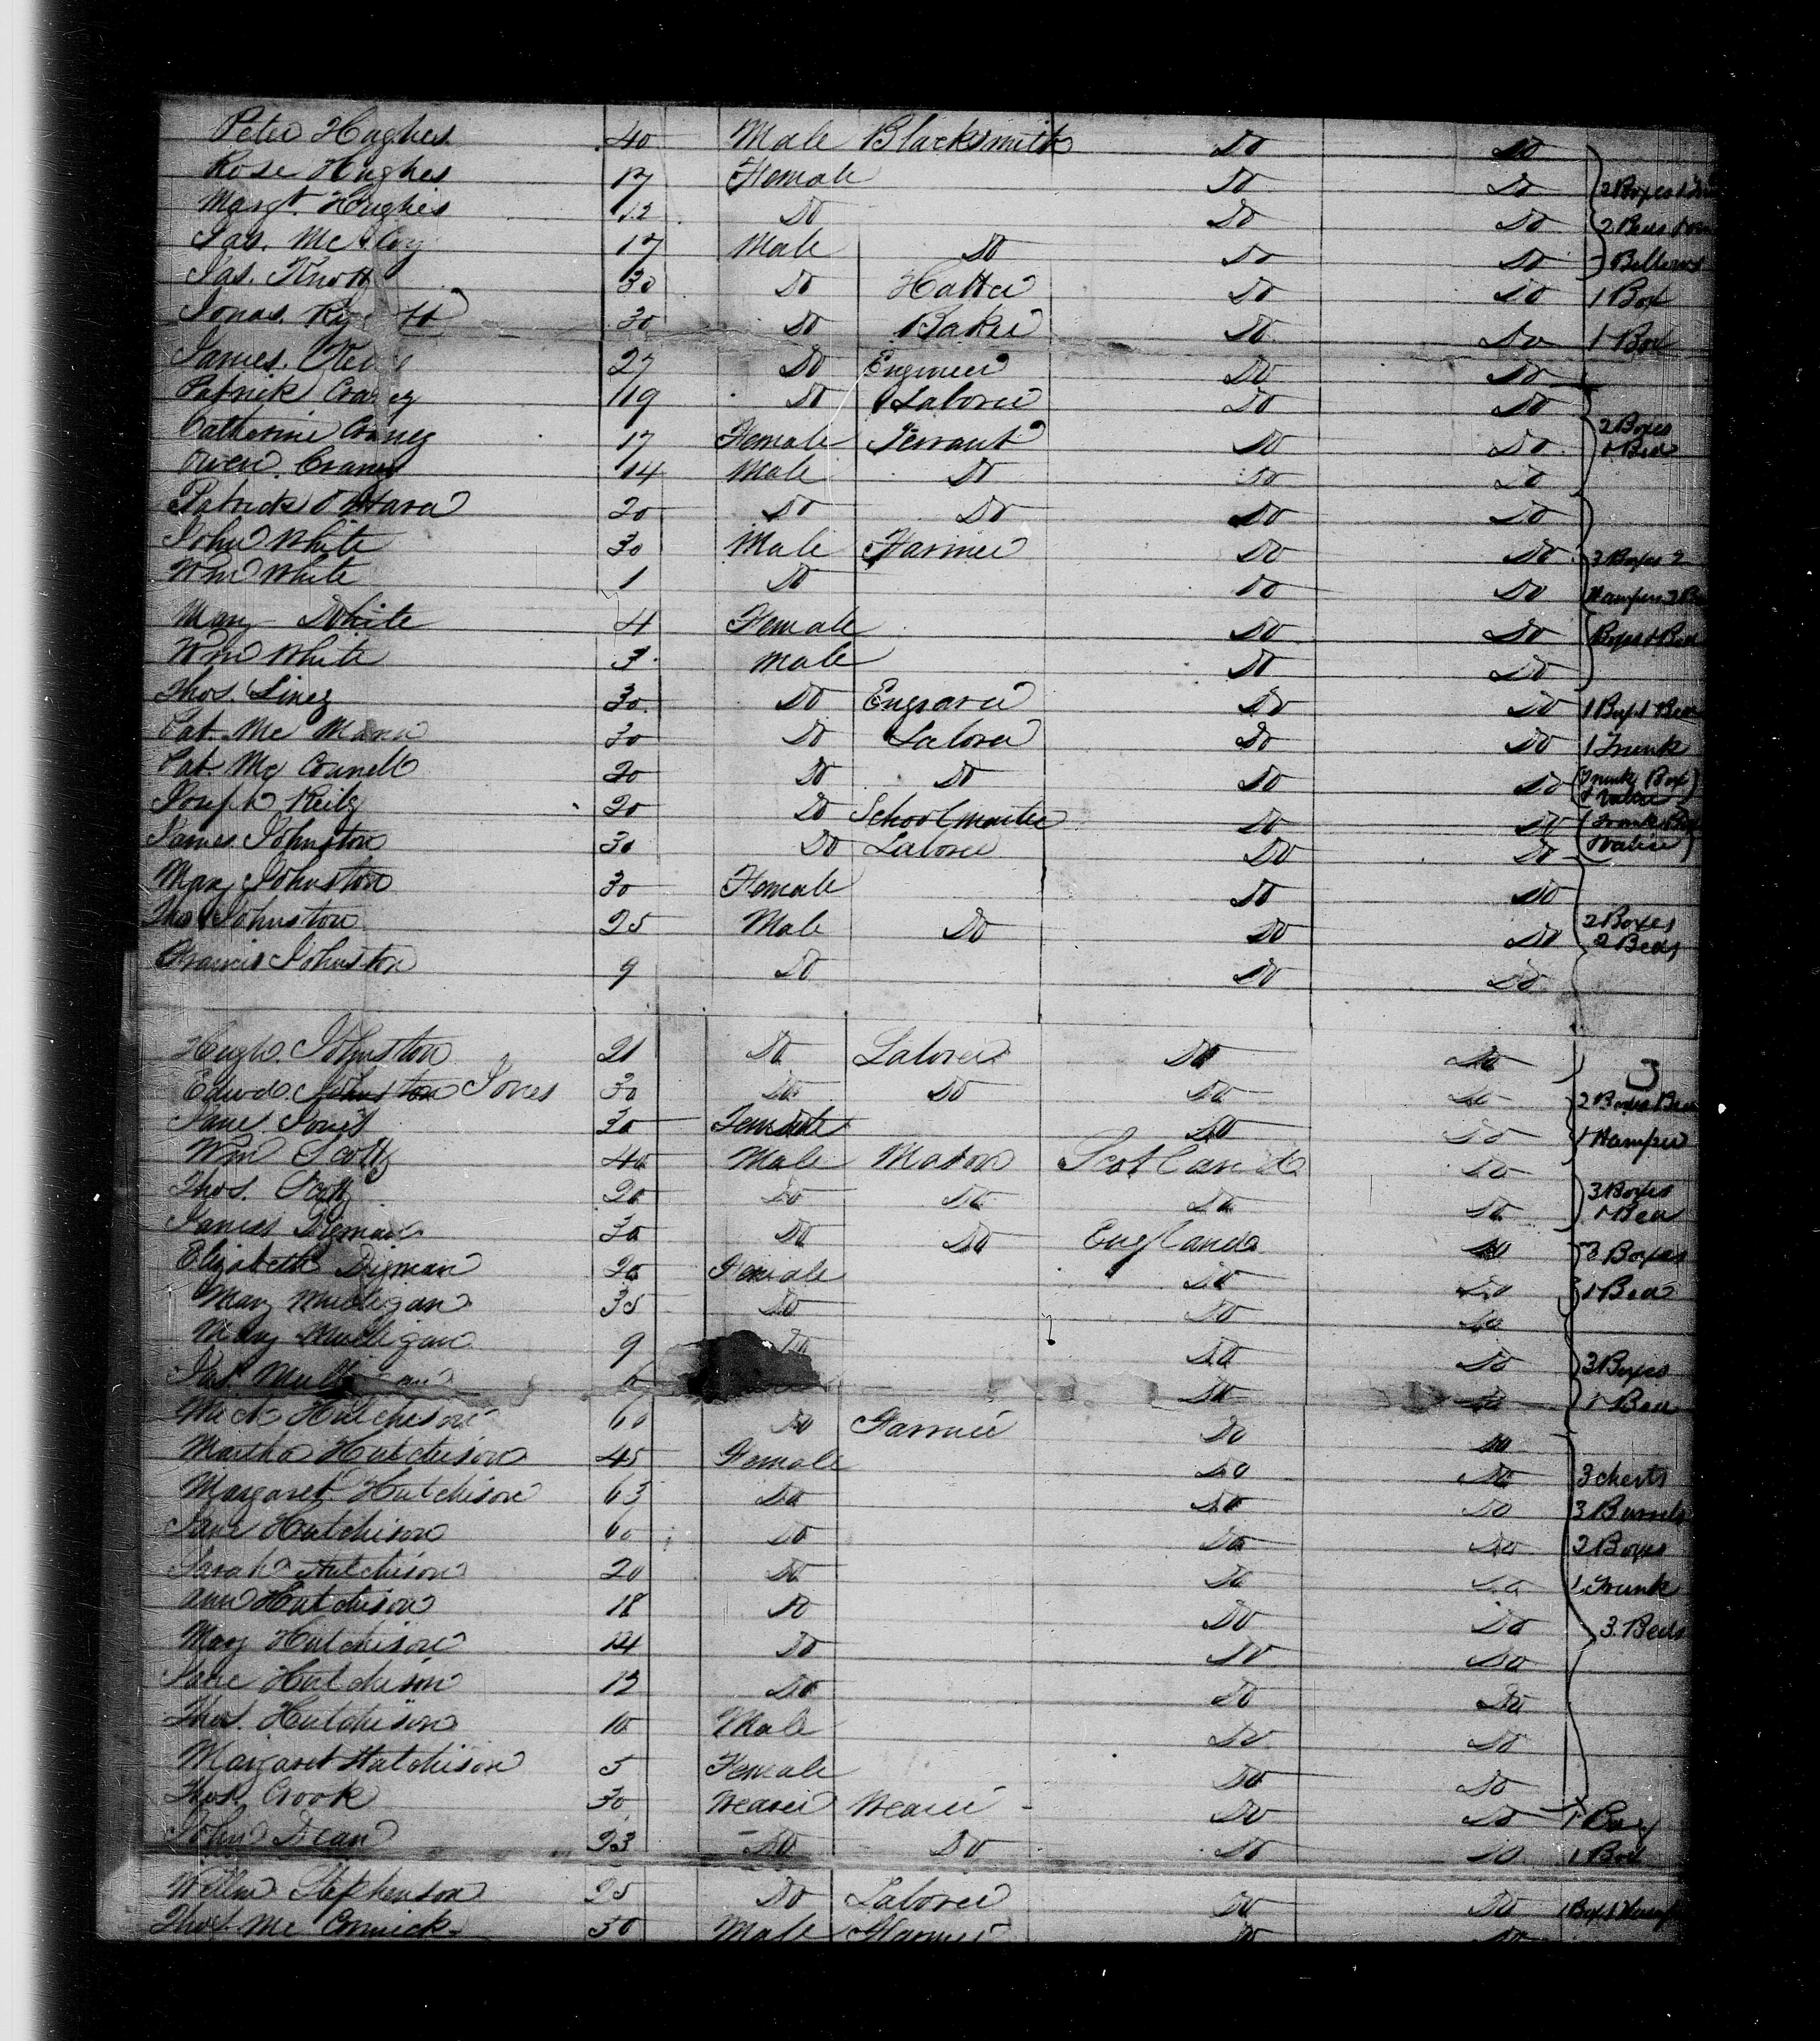 Peter Hughes 40 Male Blacksmith Do Do
Rose Hughes 17 Female Do Do 2 Boxes
Margt. Hughes 12 Do Do Do 2 Beds
Jas. Mc 17 Male Do Do Do Bellows
Jas. Knott 30 Do Hatter Do Do 1 Box
Jonas. 30 Do Baker Do Do 1 Box
James. 27 Do Engineer Do Do
Patrick Craney 19 Do Laborer Do Do
Catherine Craney 17 Female Servant Do Do 2 Boxes 1 Bed
Owen Craney 14 Male Do Do Do
Patrick O Hara 20 Do Do Do Do
John White 30 Male Farmer Do Do 3 Boxes 2
Wm White 1 Do Do Do Hampers
Mary White 4 Female Do Do
Wm White 3 Male Do Do
Thos. 30 Do Engraver Do Do 1 Box 1 Bed
Pat. Mc 30 Do Laborer Do Do 1 Trunk
Pat. Mc 20 Do Do Do Do Trunk Box & Valise
Joseph Reily 20 Do Schoolmaster Do Do 1 Trunk
James Johnston 30 Do Laborer Do Do Valise
Mary Johnston 30 Female Do Do
Thos Johnston 25 Male Do Do Do 2 Boxes 2 Beds
Francis Johnston 9 Do Do Do
Hugh. Johnston 21 Do Laborer Do Do 3
Edwd. Johnston Jones 30 Do Do Do Do 2 Boxes
Jane Jones 30 Female Do Do 1 Hamper
Wm Scott 40 Male Mason Scotland Do
Thos. Scott 20 Do Do Do Do 3 Boxes 1 Bed
James Digman 30 Do Do England Do 3 Boxes
Elizabeth Digman 20 Female Do Do 1 Bed
Mary Mulligan 35 Do Do Do
Mary Mulligan 9 Do Do Do 3 Boxes
Jas. Mulligan Do Do 1 Bed
Mick Hutchison 60 Do Farmer Do Do
Martha Hutchison 45 Female Do Do 3 chests
Margaret Hutchison 63 Do Do Do 3 Barrels
Jane Hutchison 60 Do Do Do 2 Boxes
Sarah Hutchison 20 Do Do Do 1 Trunk
Ann Hutchison 18 Do Do Do 3 Beds
Mary Hutchison 14 Do Do Do
Jane Hutchison 12 Do Do Do
Thos. Hutchison 10 Male Do Do
Margaret Hutchison 5 Female Do Do
Thos. Crook 30 Weaver Weaver Do Do 1 Bag
John Dean 23 Do Do Do Do 1 Box
Willm Stephenson 25 Do Laborer Do Do 1 Box
Thos. Mc Cormick 30 Male Farmer Do Do